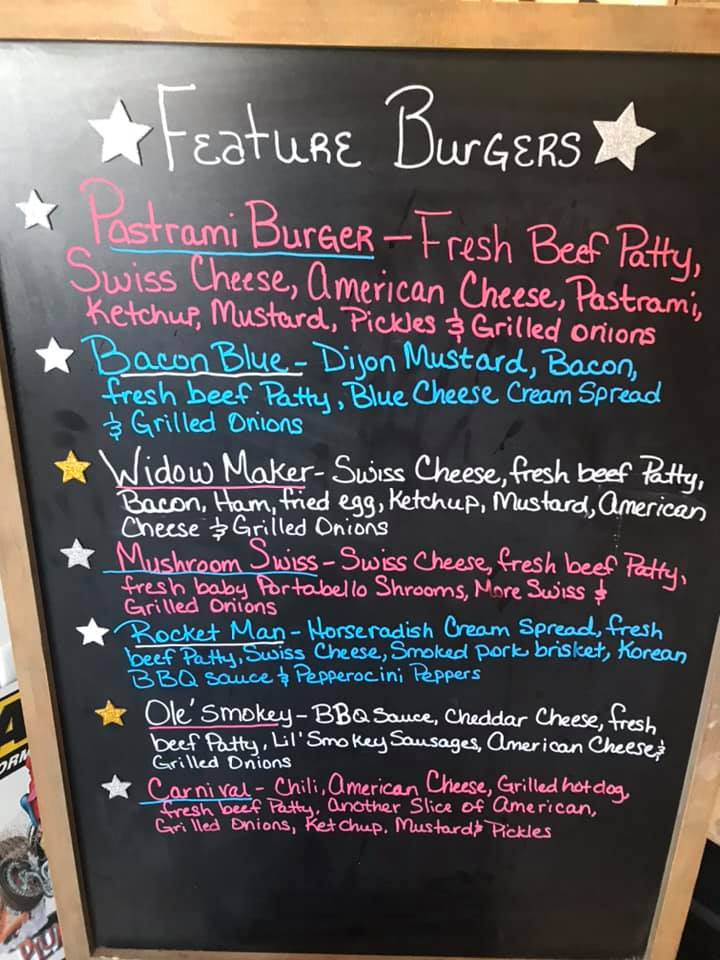 Feature Burgers
Pastrami Burger - Fresh Beef Patty,
Swiss Cheese, American Cheese, Pastrami,
Ketchup, Mustard, Pickles & Grilled onions
Bacon Blue - Dijon Mustard, Bacon,
fresh beef Patty, Blue Cheese Cream Spread
& Grilled Onions
Widow Maker - Swiss Cheese, fresh beef Patty,
Bacon, Ham, fried egg, Ketchup, Mustard, American
Cheese & Grilled Onions
Mushroom Swiss - Swiss Cheese, fresh beef Patty,
fresh baby Portabello Shrooms, More Swiss &
Grilled Onions
Rocket Man - Horseradish Cream Spread, fresh
beef Patty, Swiss Cheese, Smoked pork brisket, Korean
BBQ Sauce & Pepperocini Peppers
Ole' Smokey - BBQ Sauce, Cheddar Cheese, fresh
beef Patty, Lil' Smokey Sausages, American Cheese &
Grilled Onions
Carnival - Chili, American Cheese, Grilled hotdog,
fresh beef Patty, another Slice of American,
Grilled Onions, Ketchup, Mustard & Pickles